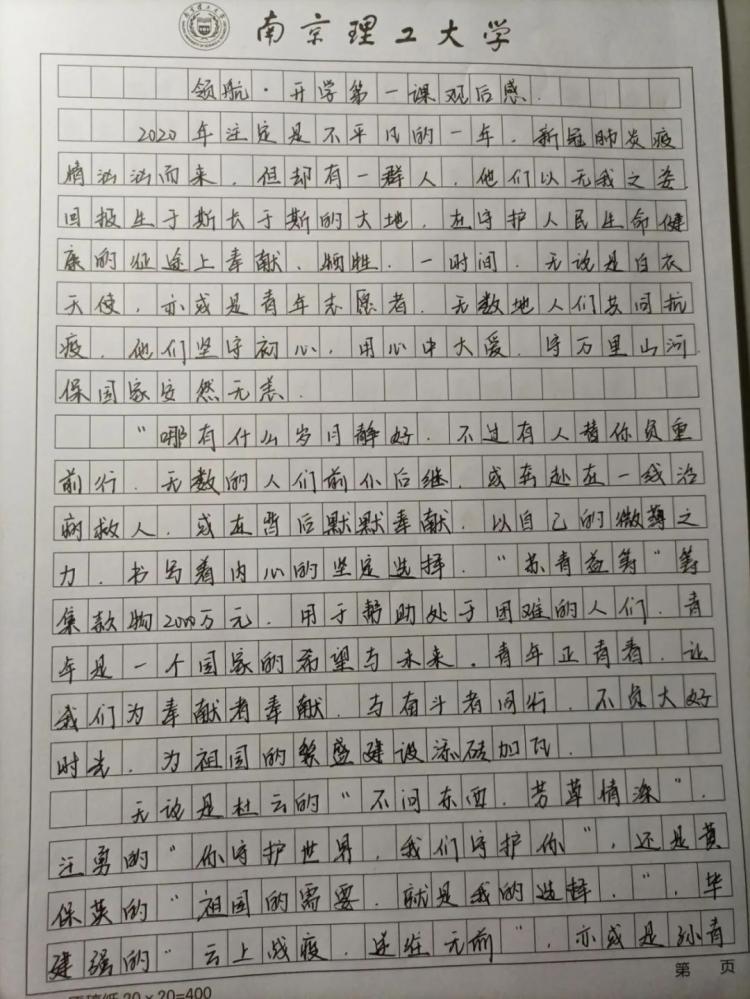 南京理工大学
领航·开学第一课观后感.
2020年注定是不平凡的一年.新冠肺炎疫
情汹汹而来.但却有一群人.他们以无我之姿
回报生于斯长于斯的大地.在守护人民生命健
康的征途上奉献、牺牲.一时间.无论是白衣
天使,亦或是青年志愿者.无数地人们共同抗
疫.他们坚守初心,用心中大爱.守万里山河
保国家安然无恙.
"哪有什么岁月静好.不过有人替你负重
前行.无数的人们前仆后继.或奔赴在一线治
病救人.或在背后默默奉献.以自己的微薄之
力.书写着内心的坚定选择."苏青益筹"筹
集款物2000万元.用于帮助处于困难的人们.青
年是一个国家的希望与未来.青年正青春.让
我们为奉献者奉献.与奋斗者同行.不负大好
时光.为祖国的繁盛建设添砖加瓦.
无论是杜云的"不问东西.芳草情深".
汪勇的"你守护世界,我们守护你",还是黄
保英的"祖国的需要.就是我的选择.",毕
建强的"云上战疫.逆往无前",亦或是孙青
第 页
20×20=400